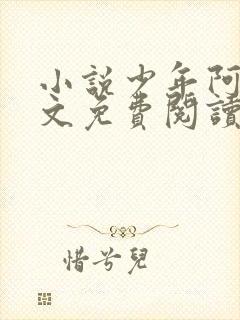 小說少年阿
文免費閱讀
惜兮兒